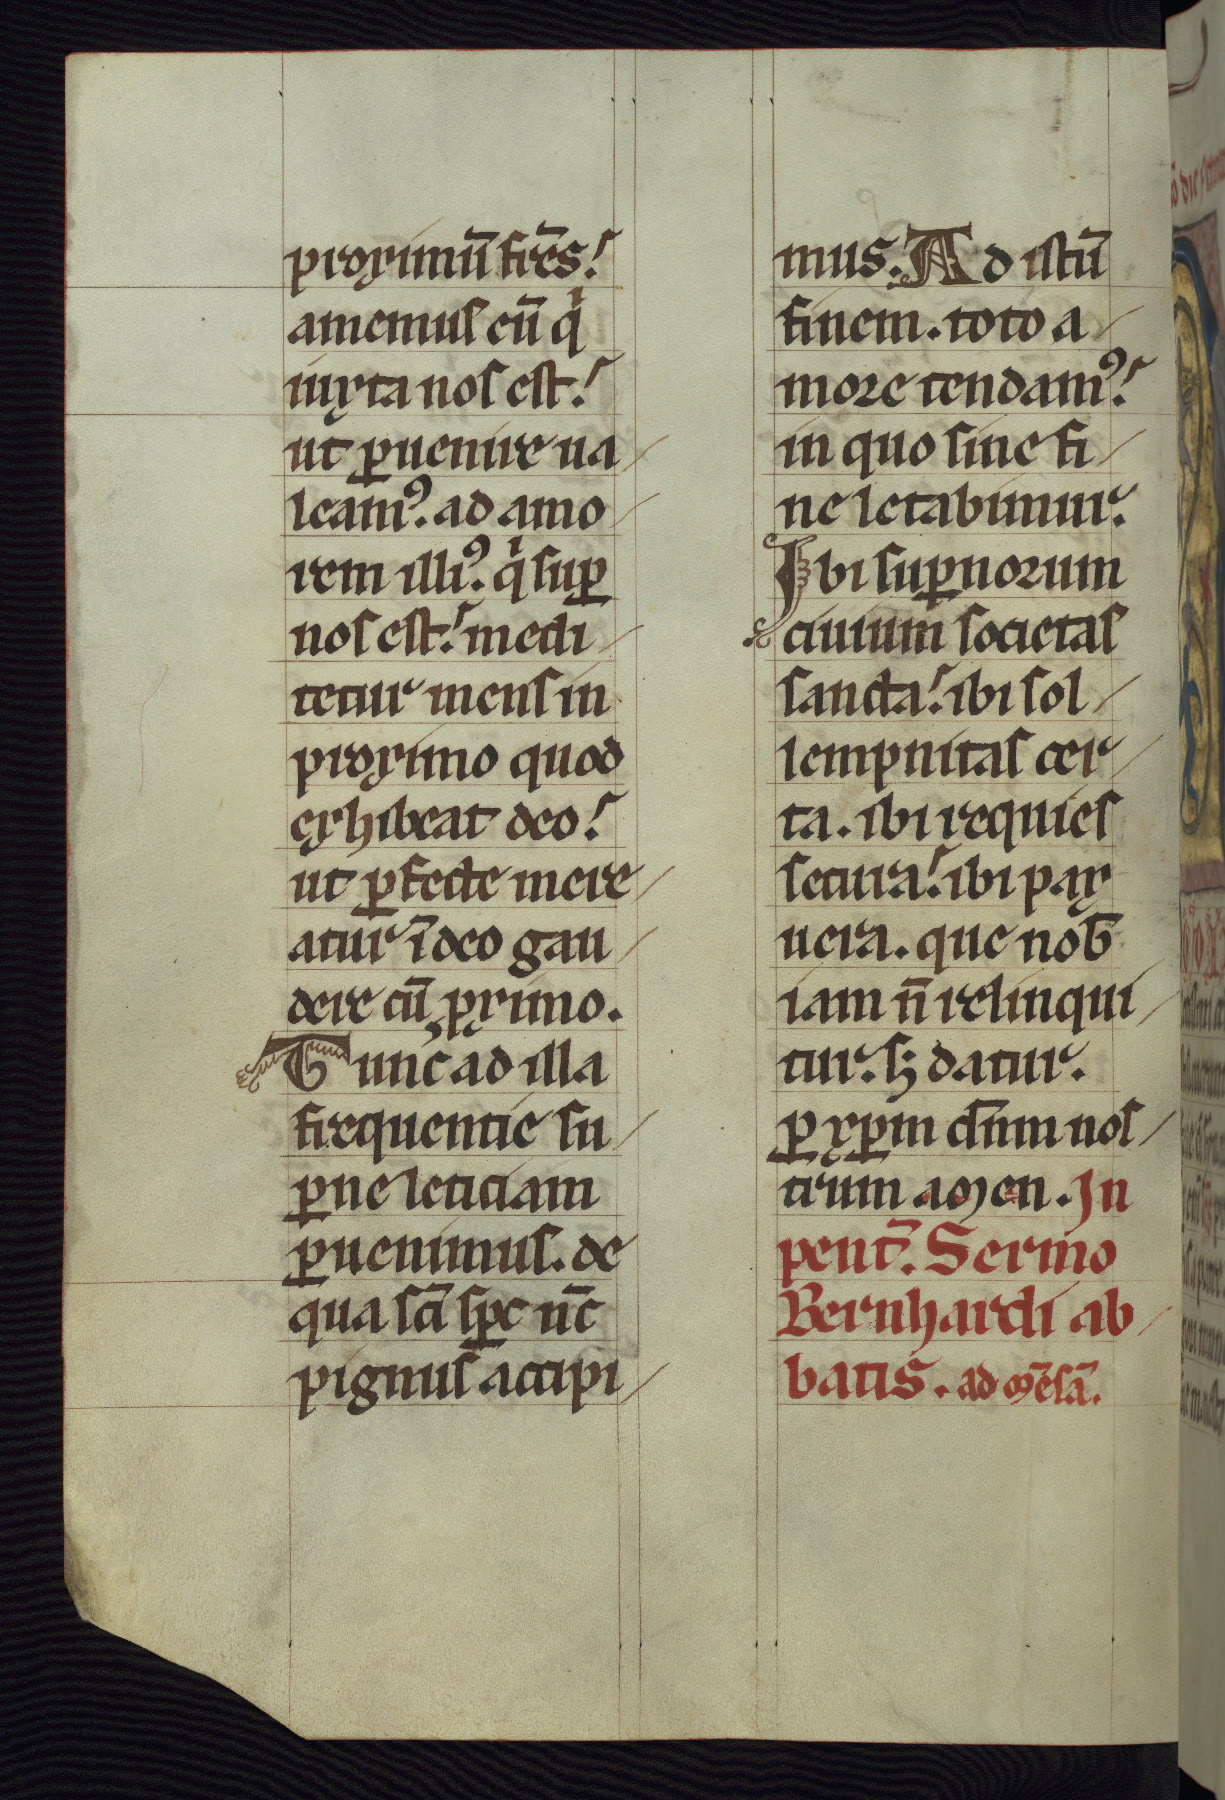 proximū fr̄es.
amemus eū qͥ
iuxta nos est.
ut ꝑuenire ua
leamꝰ. ad amo
rem illiꝰ. qͥ suꝑ
nos est. medi
tetur mens in
proximo quod
exhibeat deo.
ut ꝑfecte mere
atur ī deo gau
dere cū ꝓximo.
Tunc̄ ad illa
frequentie su
ꝑne leticiam
ꝑuenimus. de
qua sc̄i sp̄c nūc
pignus accipi
mus. Ad istū
finem. toto a
more tendamꝰ.
in quo sine fi
ne letabimur.
Ibi suꝑnorum
ciuium societas
sancta. ibi sol
lempnitas cer
ta. ibi requies
secura. ibi pax
uera. que nob̄
iam n̄ relinqui
tur. sꝫ datur.
ꝑ xp̄m dn̄m nos
trum amen. In
pent̄. Sermo
Bernhardi ab
batis. ad mēsā.